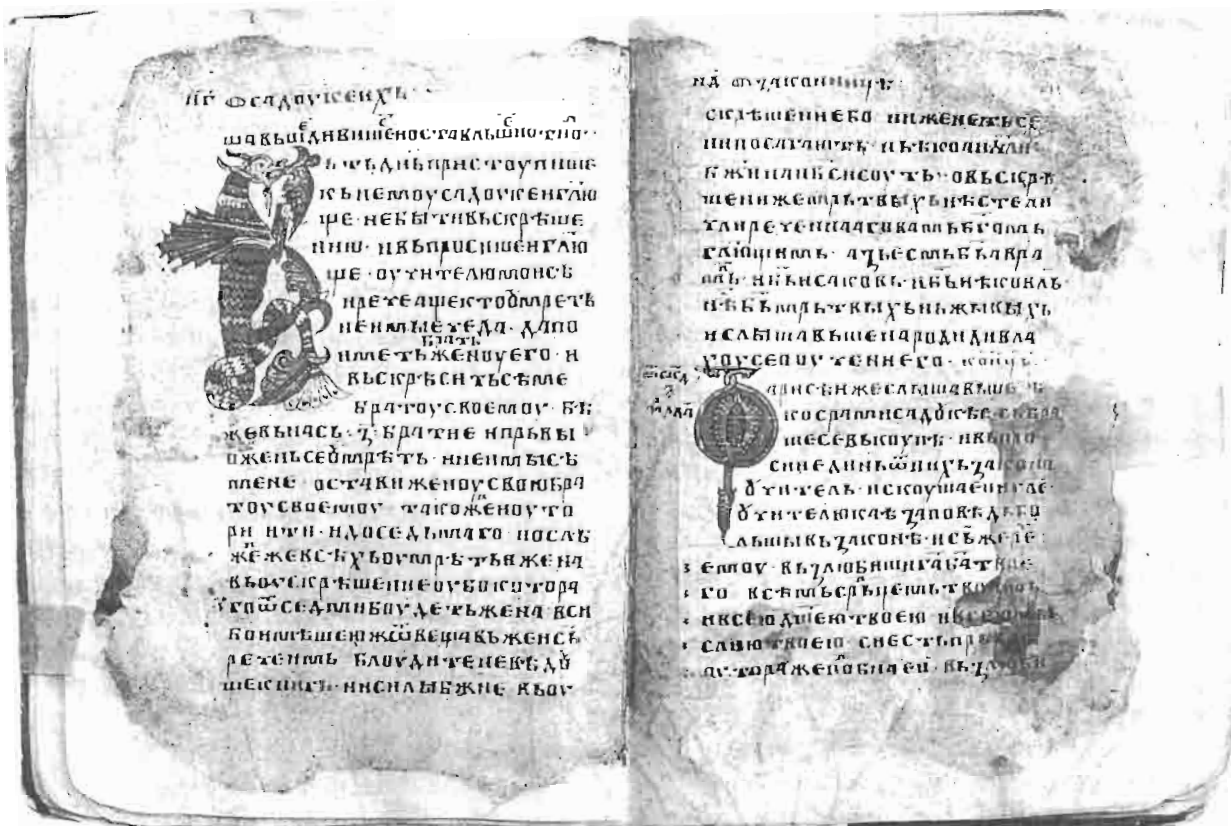 нг҃ ѿ садоукеихъ·
шавьшідивишеноставльшиотидо··
ътъднь пристоупише
къ немоу садоукеи глю
ще· не быти вьскрѣше
нию· и вьпросише и глю
ще· оучителю моиси
рече аще кто ѹмреть
не имы чеда· да по
брать
иметь женоу его· и
вьскрѣсить сѣме
братоу своемоу· бѣ
же вь нась· з҃· братие и прьвы
ожень се ѹмрѣть· и не имы сѣ
мене· остави женоу свою бра
тоу своемоу· такожⷣе и вьто
ри и т҃и· и до седьмаго· послѣ
жⷣе же всѣхь оумрѣть и жена
вь оускрѣшение оубо котора
го ѿ седми боудеть жена· вси
бо имѣше ю ж ѿвещавь же ис҃ь
рече имь· блоудите не вѣдѹ
ще книгь· ни силы бж҃ие· вь оу
нд҃ ѿ законницѣ·
скрѣшение бо ни женеть се
ни посагають· нь ѣко анг҃ли
бж҃и на нб҃си соуть· о вьскрѣ
шени же мрьтвыхь нѣсте ли
чли реченаа г вамь бг҃омь
глющимь· азь есмь б҃ь авра
мль· и б҃ь исаковь· и б҃ь иѣковль·
нѣ б҃ь мрьтвыхь нь живыхь
и слышавьше народи дивла
хоу се о оучении его· конць·
фарисѣи же слышавьше ѣ
ко срами садѹкѣе· сьбра
ше се вькоупѣ· и вьпро
си ѥдинь ѿ нихь законо
ѹчитель· искоушае и и гл҃е·
ѹчителю каѣ заповѣдь бо
льши вь законѣ· и с҃ь же ре҃·
емоу· вьзлюбиши г҃а б҃а твое
го· всѣмь срⷣцемь твоимь
и всею дш҃ею твоею и всею ми
слию твоею· си есть прьва
вторая же подобна еи· вьзлюби